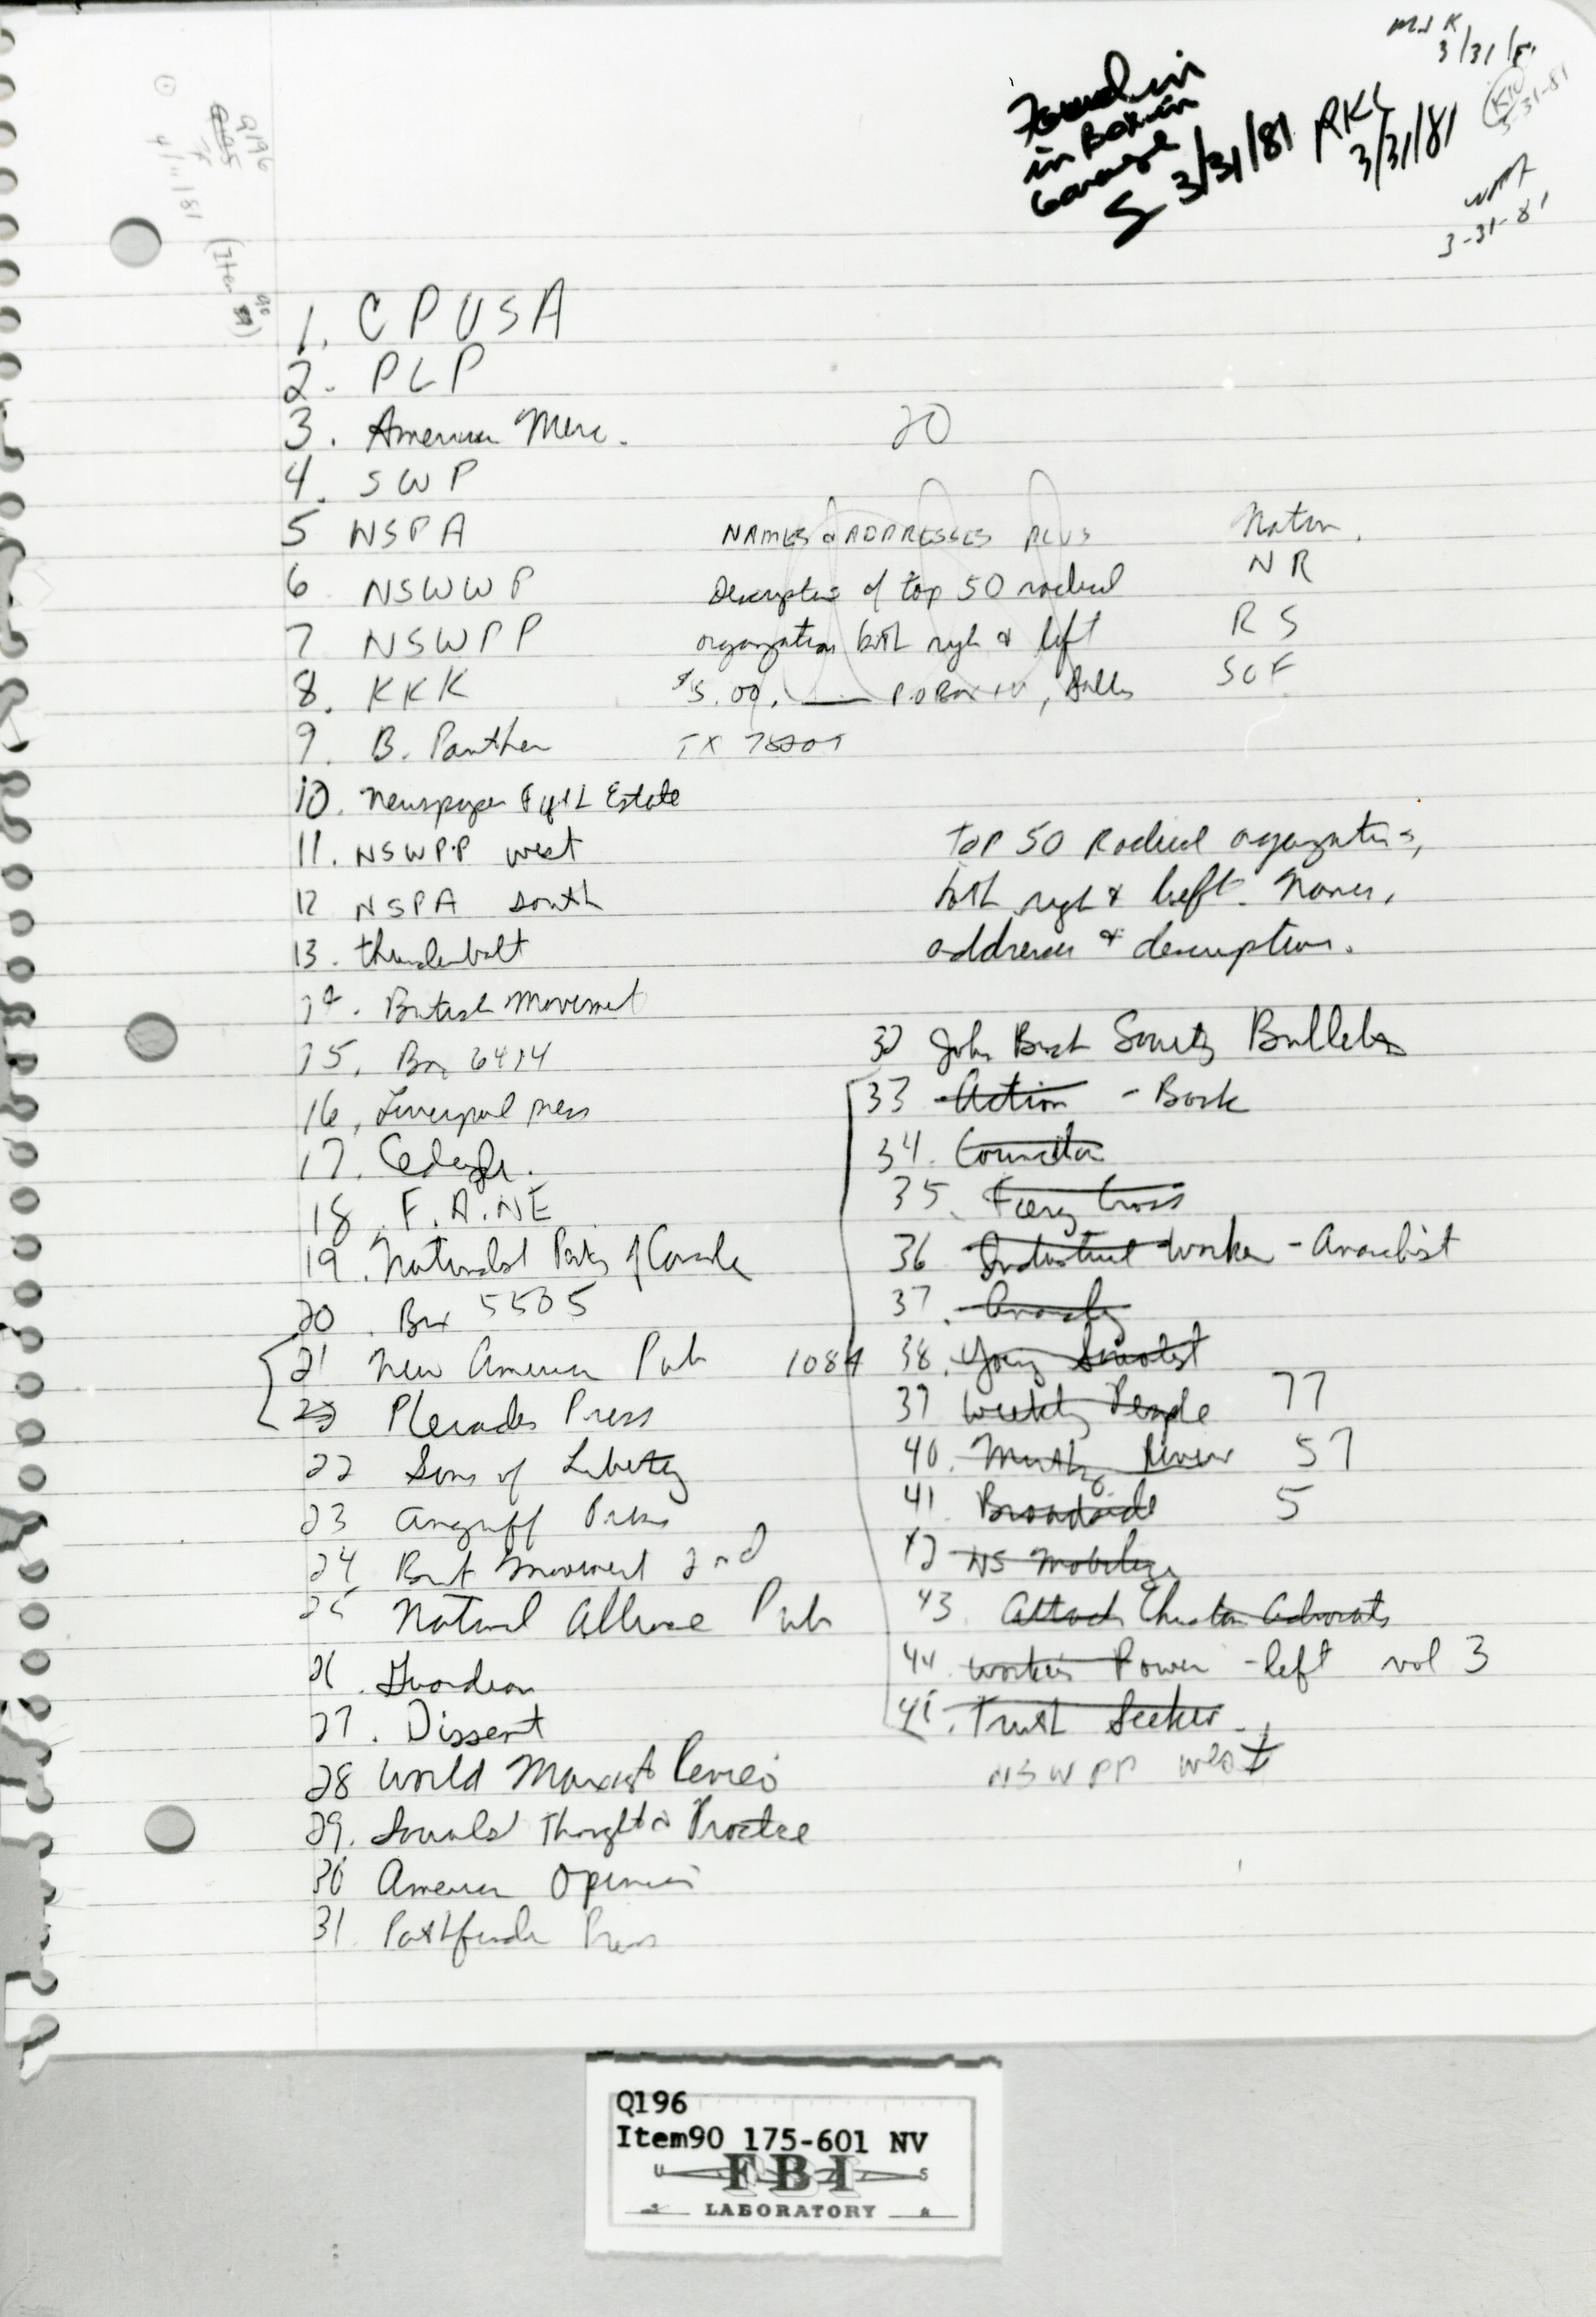 MJK
3/31/81
Found in
in Box in
Garage
3/31/81
RKL
3/31/81
3-31-81
3-31-81
Q196
4/11/81
(Item 90)
1. CPUSA
2. PLP
3. American Merc.
20
4. SWP
5 NSPA
NAMES & ADDRESSES PLUS
Nation.
6 NSWWP
Description of top 50 radical
NR
7 NSWPP
organizations both right & left
RS
8. KKK
$5.00. P.O Box
SOF
9. B. Panther
TX
10. Newspaper Fifth Estate
11. NSWPP west
Top 50 Radical organizations,
12 NSPA south
both right & left. Names,
13. thunderbolt
addresses & description.
14. British Movement
32 John Birch Society Bulletin
15. Box 6414
33 Action - Book
16. Liverpool press
34. Councilor
17.
35. Fiery Cross
18. F.A.NE
36 Industrial Worker - Anarchist
19. Nationalist Party of Canada
37. Anarchy
20. Box 5505
21 New America Pub 1084
38. Young Socialist
22 Pleiades Press
39 Weekly People 77
22 Sons of Liberty
40. Monthly Review 57
23 Angriff Press
41 Broadside 5
24 Brit Movement 2nd
42 NS Mobilizer
25 National Alliance Pub
43 Attack Christian Advocate
26. Guardian
44 Workers Power - left vol 3
27. Dissent
45. Truth Seeker
NSWPP west
28 World Marxist Review
29. Socialist Thought & Practice
30 American Opinion
31. Pathfinder Press
Q196
Item90 175-601 NV
U S
FBI
LABORATORY